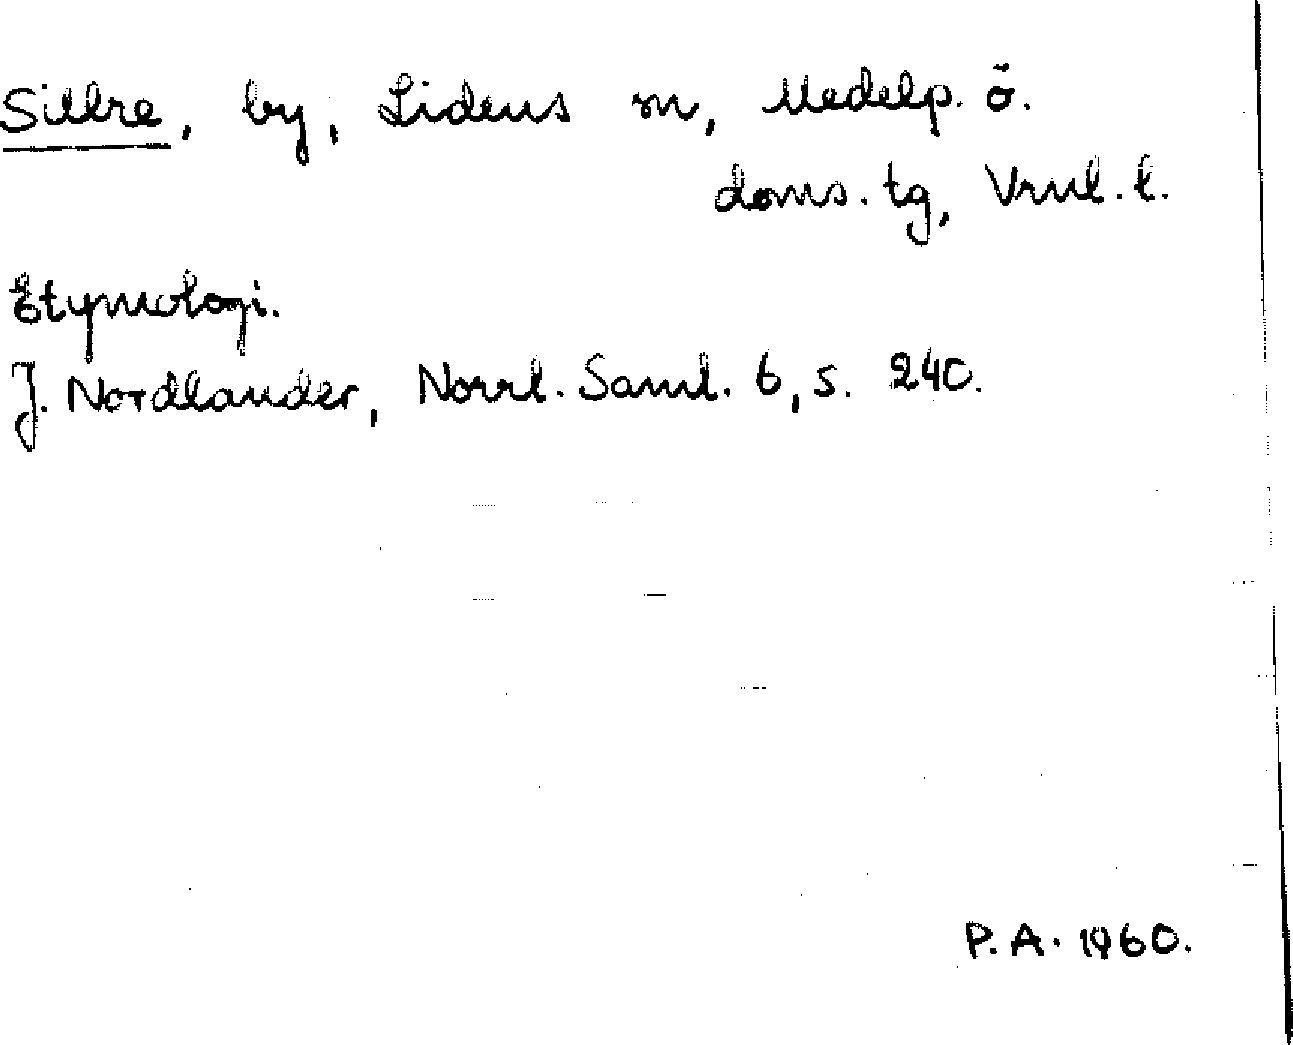 Sillre, by, Lidens sn, Medelp. ö.
doms. tg, Vrnl. l.
Etymologi.
J. Nordlander, Norrl. Saml. 6, s. 240.
P. A. 1960.